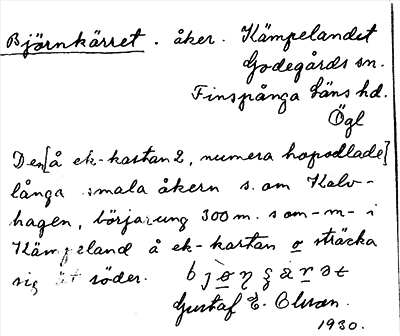 Björnkärret. åker. Kämpelandet
Godegårds sn.
Finspånga läns hd.
Ögl
Den [å ek-kartan 2, numera hopodlade]
långa smala åkern s. om Kalv-
hagen, börjar ung 300 m. s om -m- i
Kämpeland å ek-kartan o sträcka
sig åt söder.
Gustaf E. Olsson.
1930.